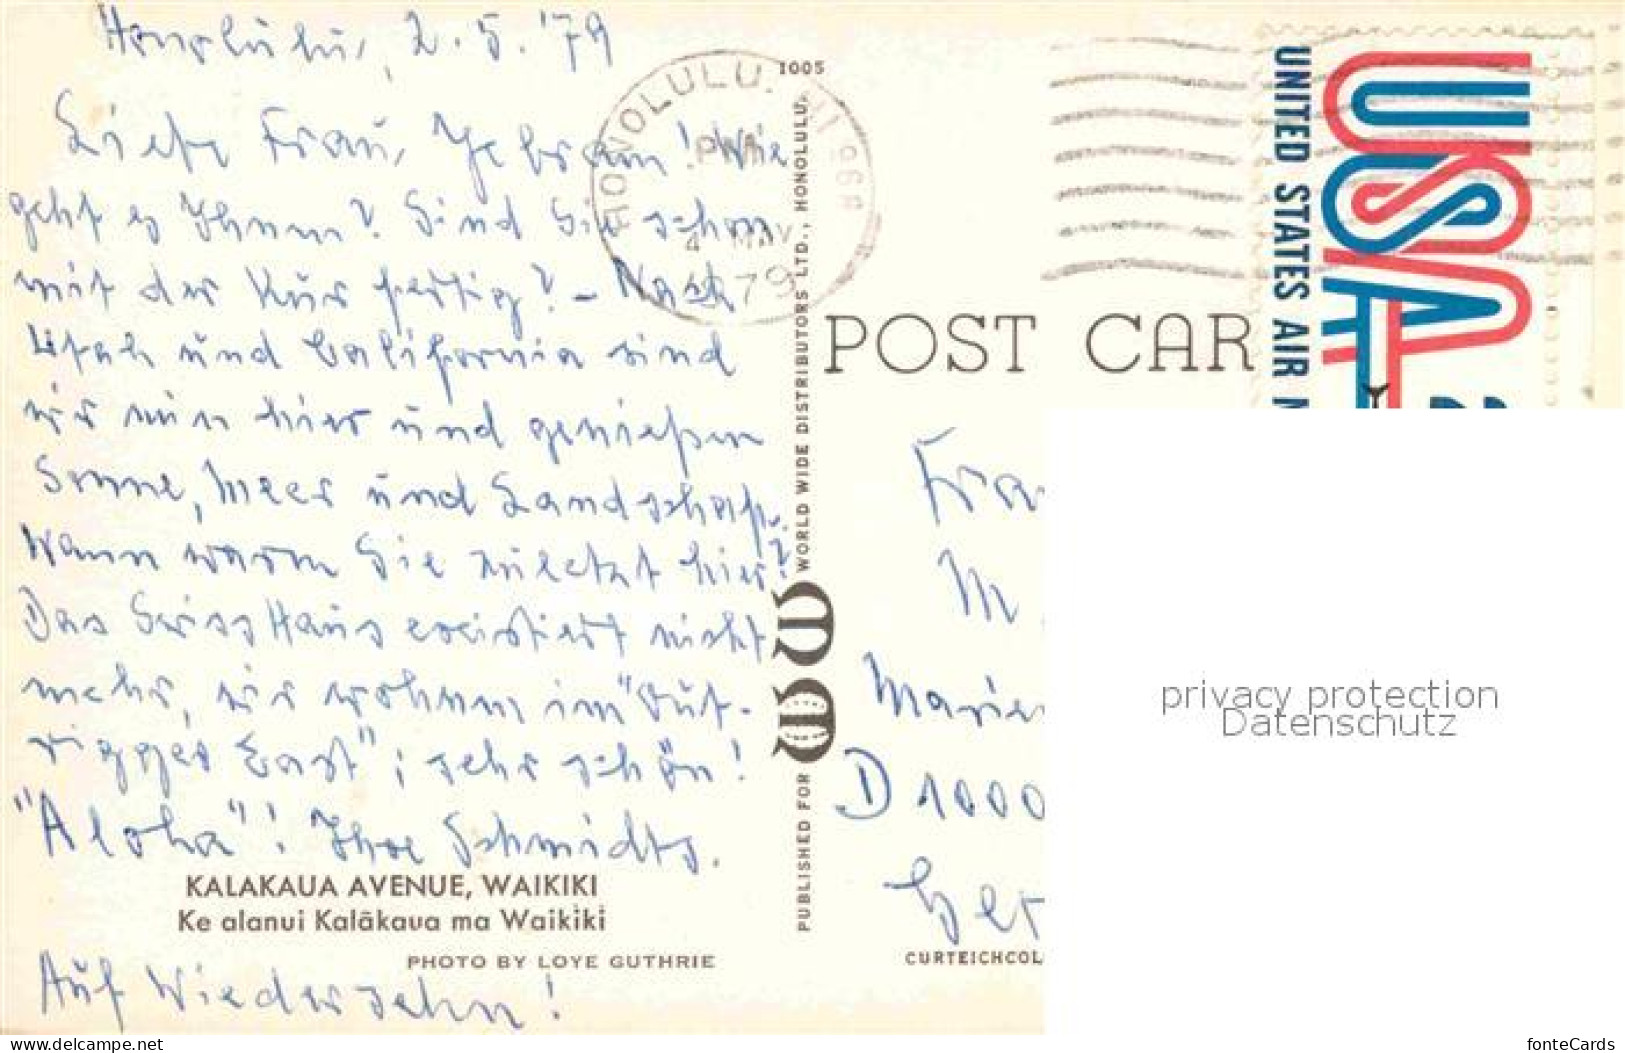 Honolulu, 2.5.'79
Liebe Frau Jebram! Wie
geht es Ihnen? Sind Sie schon
mit der Kur fertig? – Nach
Utah und California sind
wir nun hier und genießen
Sonne, Meer und Landschaft.
Wann waren Sie zuletzt hier?
Das Swiss Haus existiert nicht
mehr, wir wohnen im "Out-
rigger East"; sehr schön!
"Aloha"! Ihre Schmidts.
KALAKAUA AVENUE, WAIKIKI
Ke alanui Kalākaua ma Waikiki
PHOTO BY LOYE GUTHRIE
Auf Wiedersehn!
HONOLULU, HI 968
PM
4 MAY
1979
1005
PUBLISHED FOR WORLD WIDE DISTRIBUTORS LTD., HONOLULU,
POST CAR
USA
UNITED STATES AIR M
Fra
M
Marie
D 1000
Ger
CURTEICHCOL
privacy protection
Datenschutz
www.delcampe.net
fonteCards